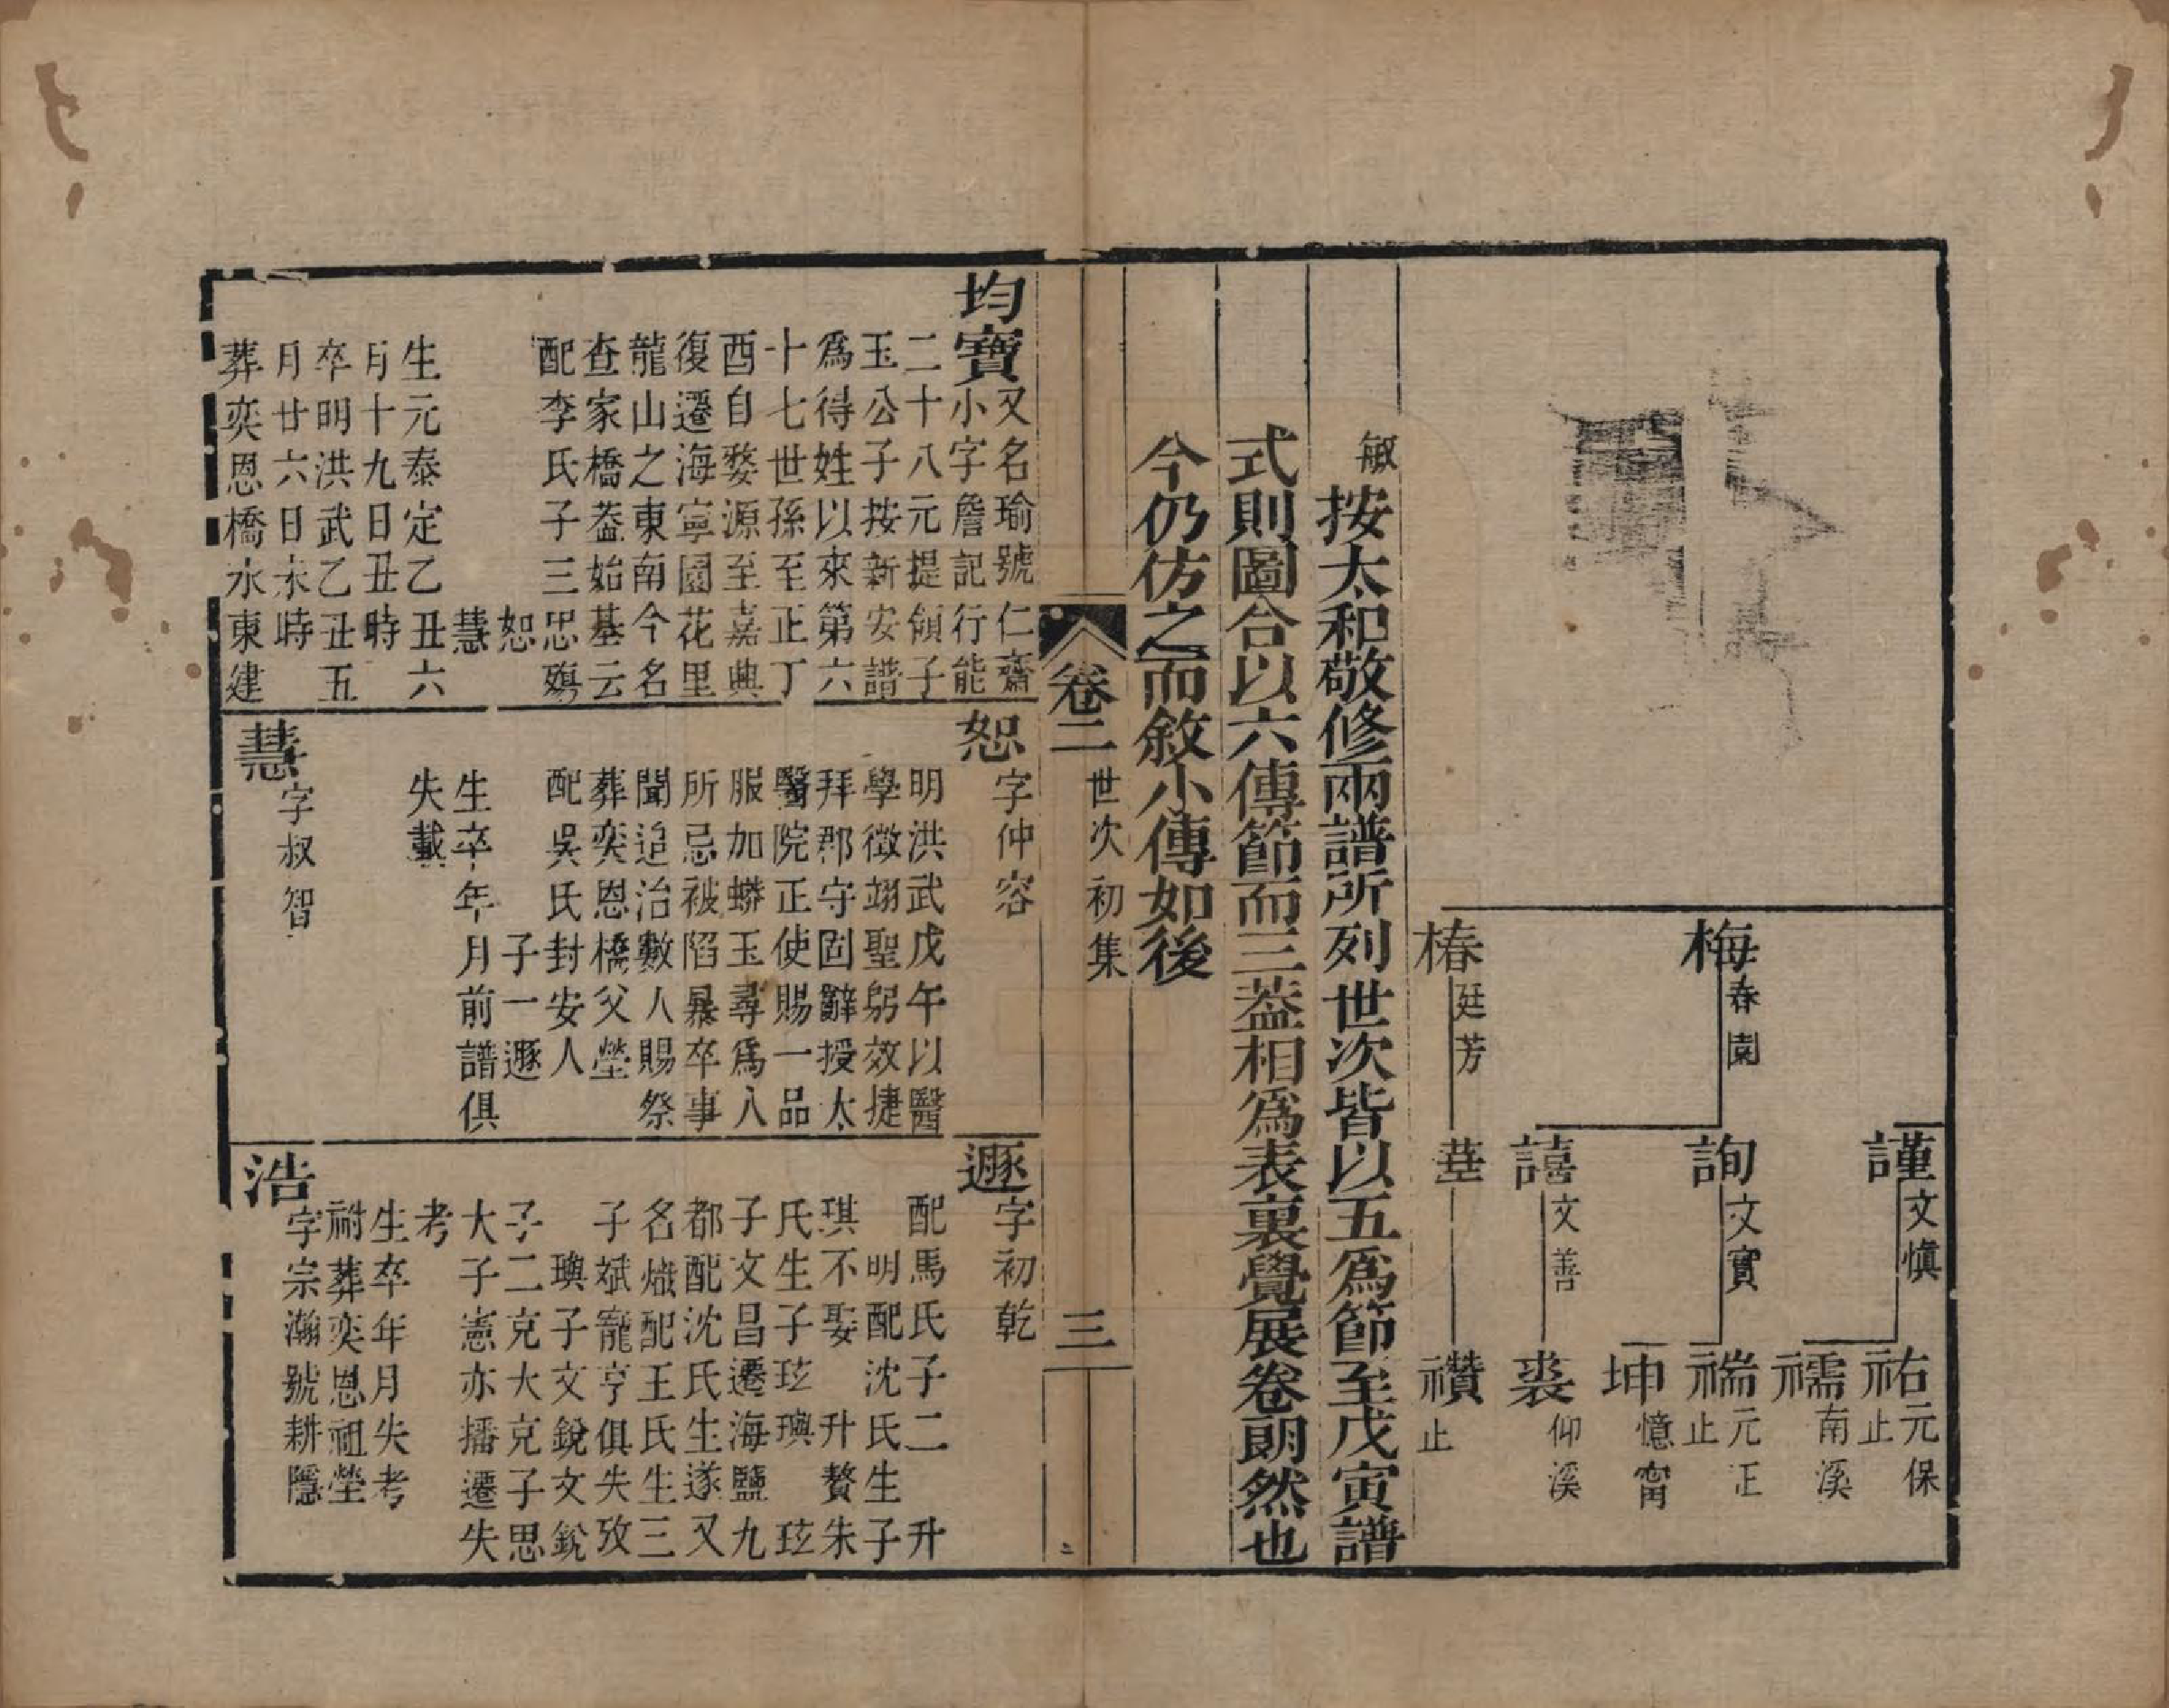 梅春園
椿廷芳
謹文愼
詢文實
譆文善
堇
祐元保止
襦南溪
褍元正止
坤憶甯
裘仰溪
禶止
敏按太和敬修兩譜所列世次皆以五爲節至戊寅譜
式則圖合以六傳節而三葢相爲表裏覺展卷朗然也
今仍仿之而敘小傳如後
卷二 世次初集 三
均寶又名瑜號仁齋
小字詹記行能
二十八元提領子
玉公子按新安譜
爲得姓以來第六
十七世孫至正丁
酉自婺源至嘉興
復遷海寧園花里
龍山之東南今名
查家橋葢始基云
配李氏子三忠殤
恕
慧
生元泰定乙丑六
月十九日丑時
卒明洪武乙丑五
月廿六日未時
葬奕恩橋水東建
恕字仲容
明洪武戊午以醫
學徵翊聖躬效捷
拜郡守固辭授太
醫院正使賜一品
服加蟒玉尋爲入
所忌被陷暴卒事
聞追治數人賜祭
葬奕恩橋父塋
配吳氏封安人
子一遯
生卒年月前譜俱
失載
慧字叔智
遯字初乾
配馬氏子二升
明配沈氏生子
琪不娶升贅朱
氏生子玹璵玹
子文昌遷海鹽九
都配沈氏生遂又
名熾配王氏生三
子斌寵亨俱失攷
璵子文銳文銳
子二克大克子思
大子憲亦播遷失
考
生卒年月失考
祔葬奕恩祖塋
浩字宗瀚號耕隱